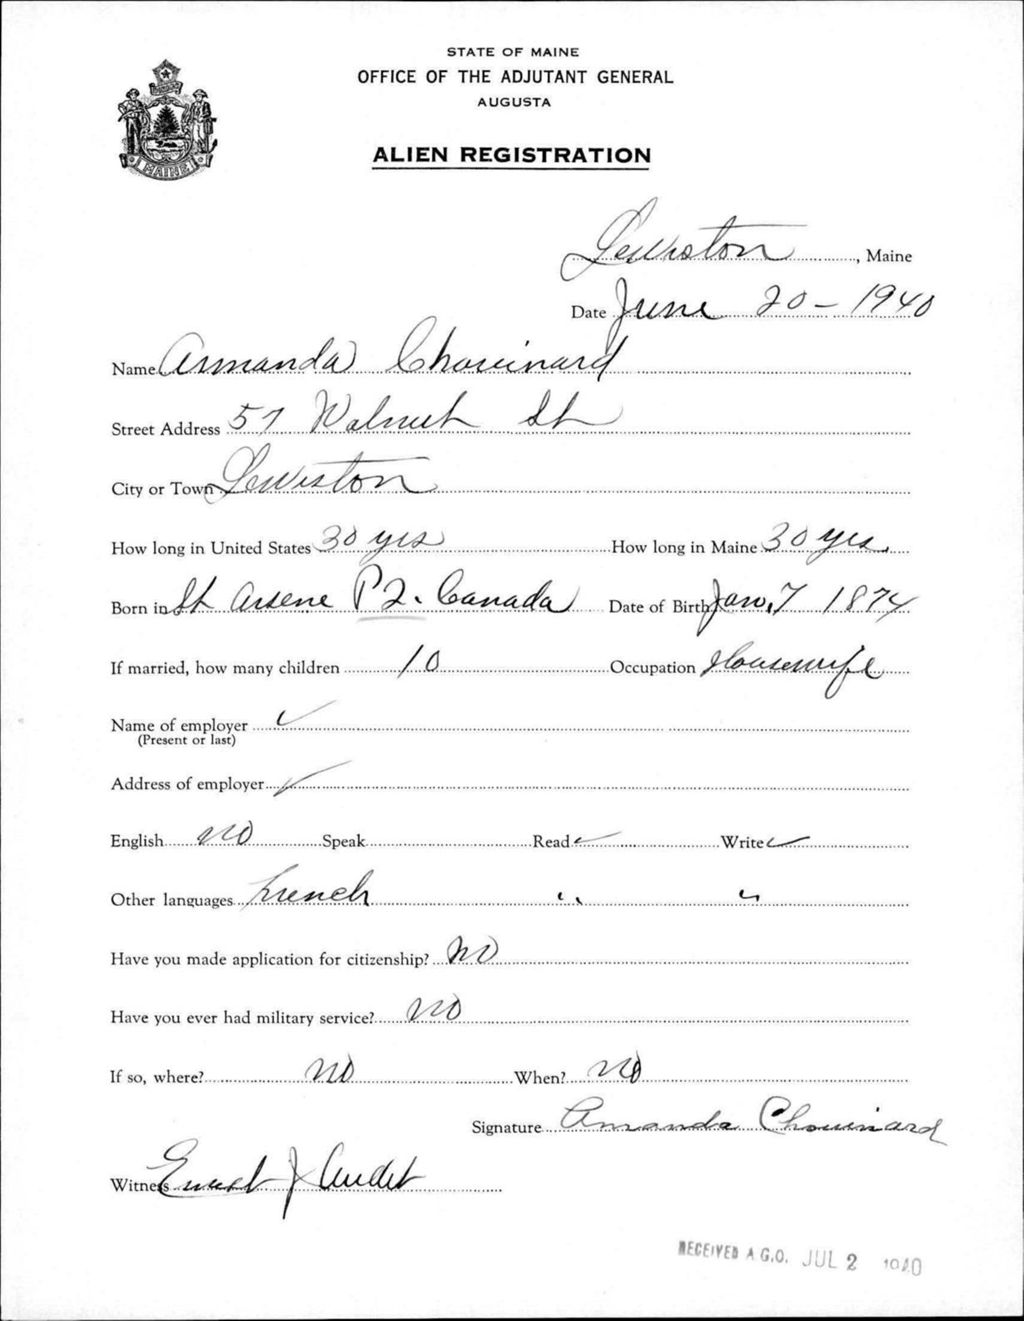 STATE OF MAINE
OFFICE OF THE ADJUTANT GENERAL
AUGUSTA
ALIEN REGISTRATION
MAINE
Lewiston, Maine
Date June 20 - 1940
Name Armanda Chouinard
Street Address 57 Walnut St
City or Town Lewiston
How long in United States 30 yrs How long in Maine 30 yrs.
Born in St Arsene P2. Canada Date of Birth Jan. 7 1874
If married, how many children 10 Occupation Housewife
Name of employer ✓
(Present or last)
Address of employer ✓
English no Speak Read ✓ Write ✓
Other languages French " "
Have you made application for citizenship? No
Have you ever had military service? No
If so, where? No When? No
Signature Amanda Chouinard
Witness Ernest J Audet
RECEIVED A.G.O. JUL 2 1940